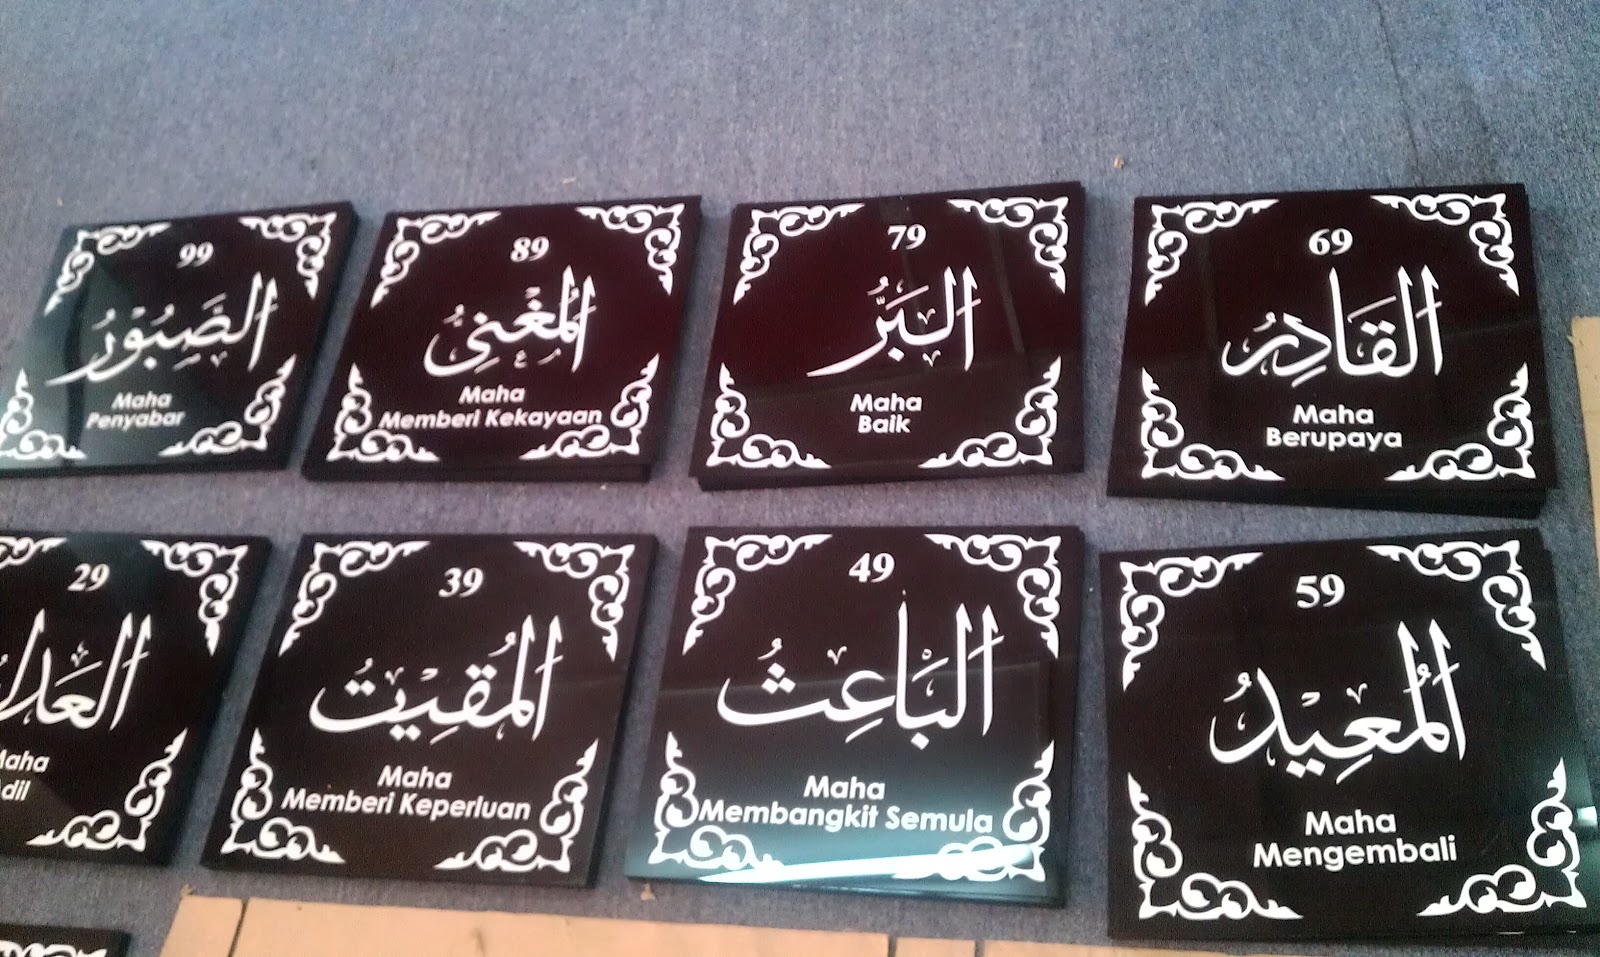 99
الصَّبُوْرُ
Maha
Penyabar
89
اَلْمُغْنِىُّ
Maha
Memberi Kekayaan
79
اَلْبَرُّ
Maha
Baik
69
اَلْقَادِرُ
Maha
Berupaya
29
اَلْعَدْلُ
Maha
Adil
39
اَلْمُقِيْتُ
Maha
Memberi Keperluan
49
اَلْبَاعِثُ
Maha
Membangkit Semula
59
اَلْمُعِيْدُ
Maha
Mengembali